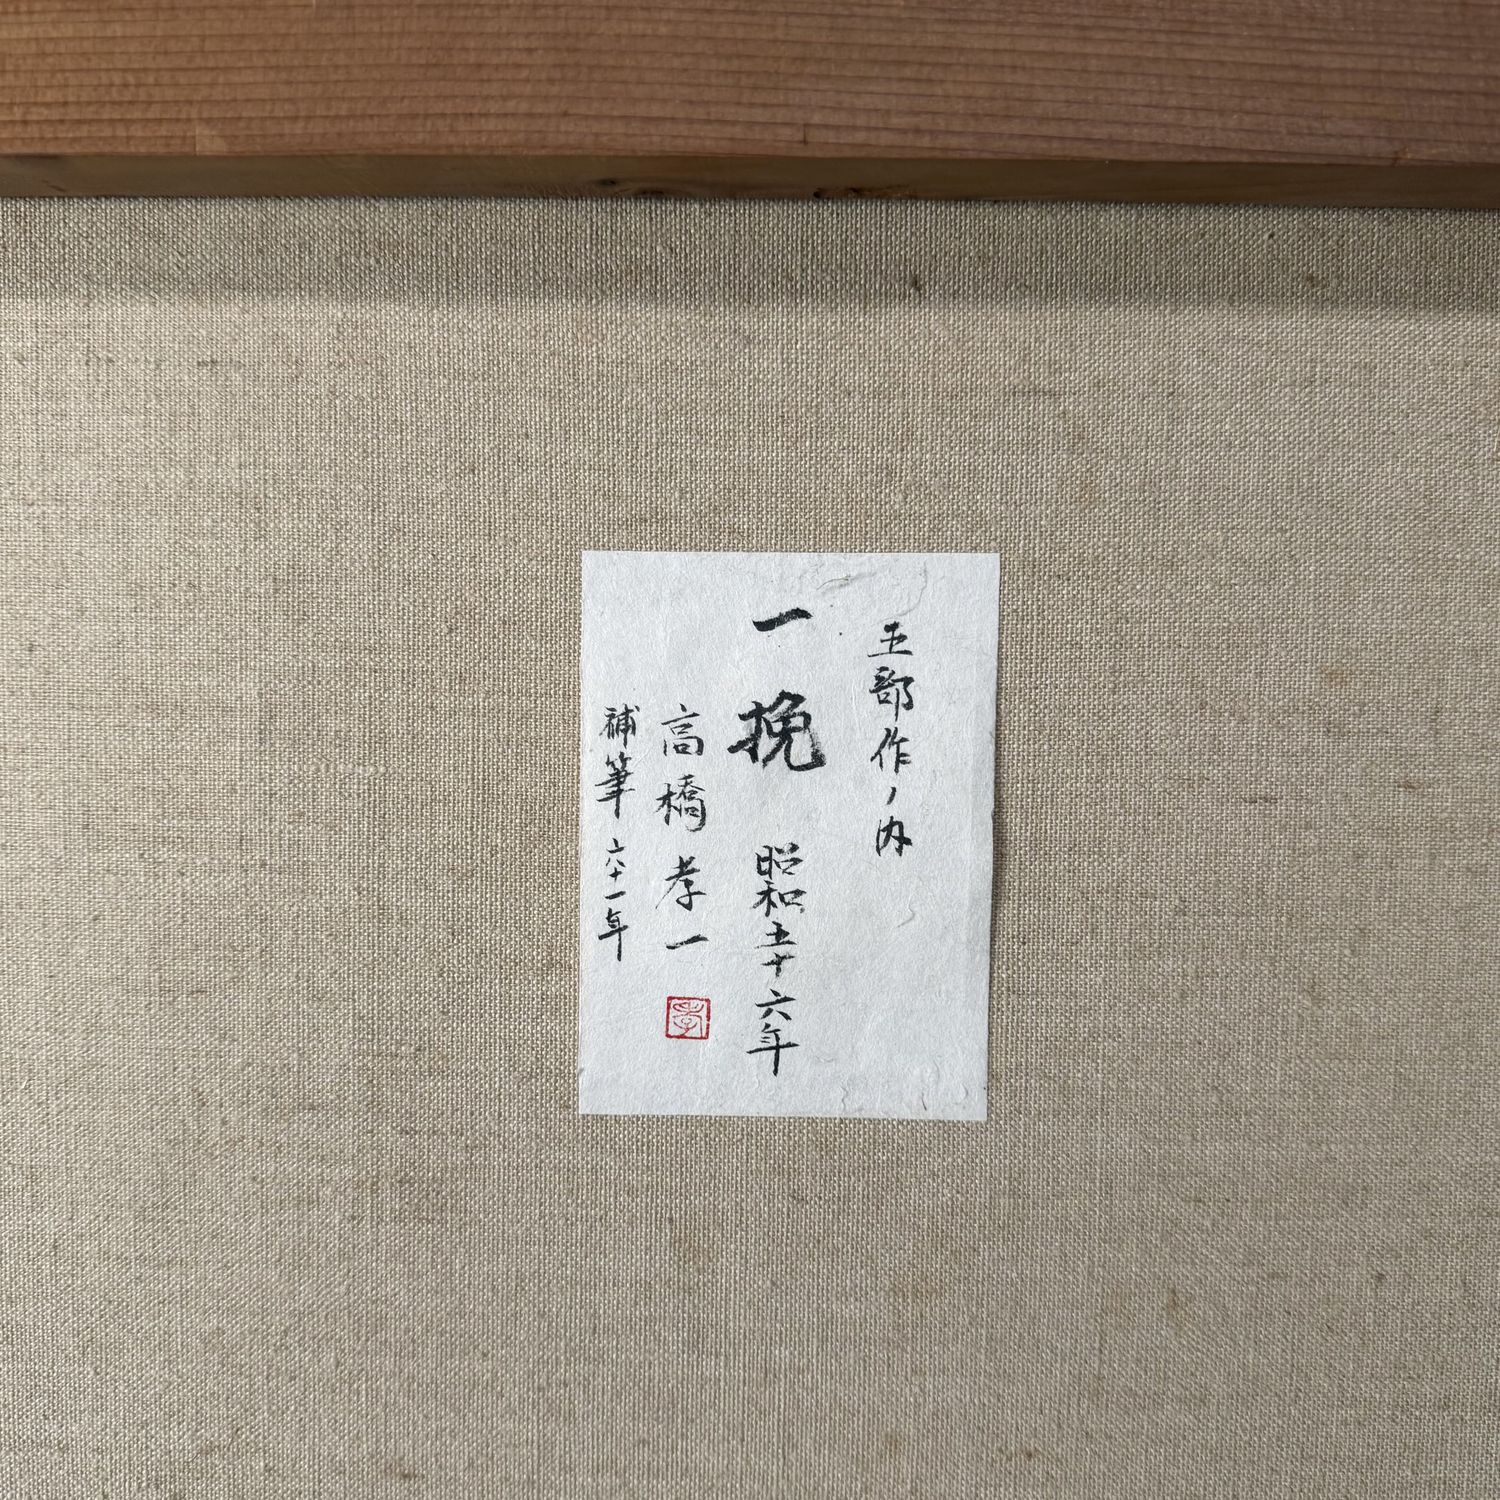 五部作ノ内
一挽 昭和五十六年
高橋孝一
孝
補筆 六十一年